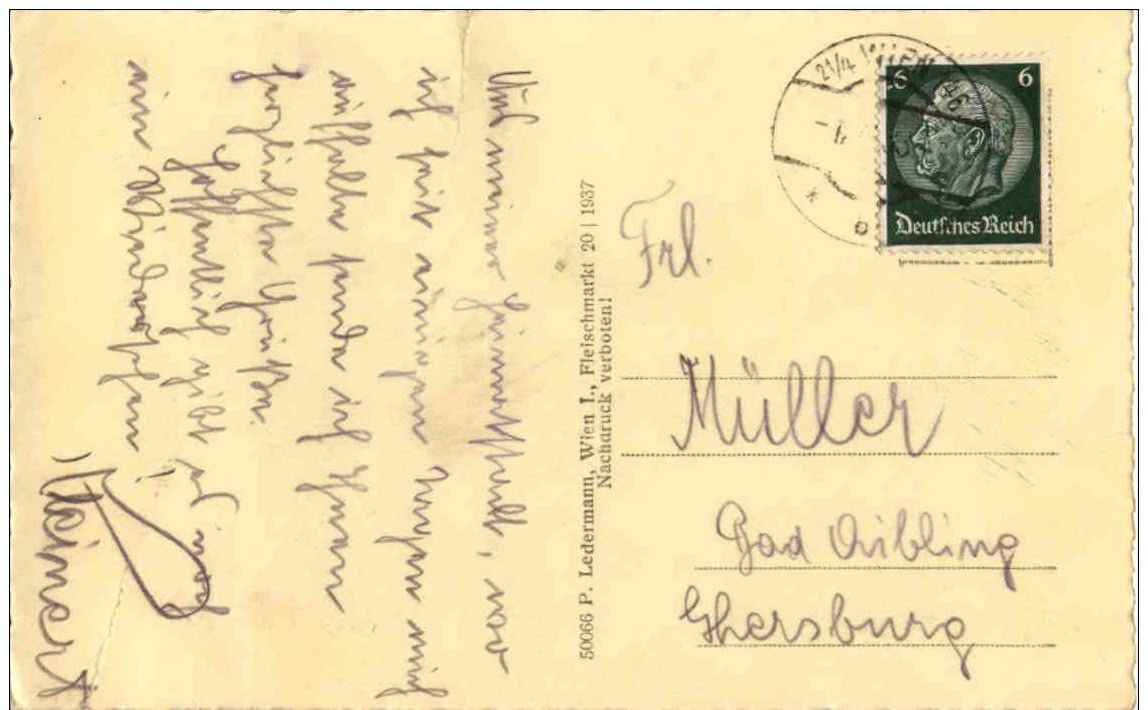 Aus meiner Heimatstadt, wo
ich seit einigen Tagen mich
aufhalte sende ich Ihnen
herzlichste Grüße.
Hoffentlich gibt es
ein Wiedersehen
50066 P. Ledermann, Wien I., Fleischmarkt 20 | 1937
Nachdruck verboten!
WIEN
6 6
Deutsches Reich
Frl.
Müller
Bad Aibling
Ghersburg